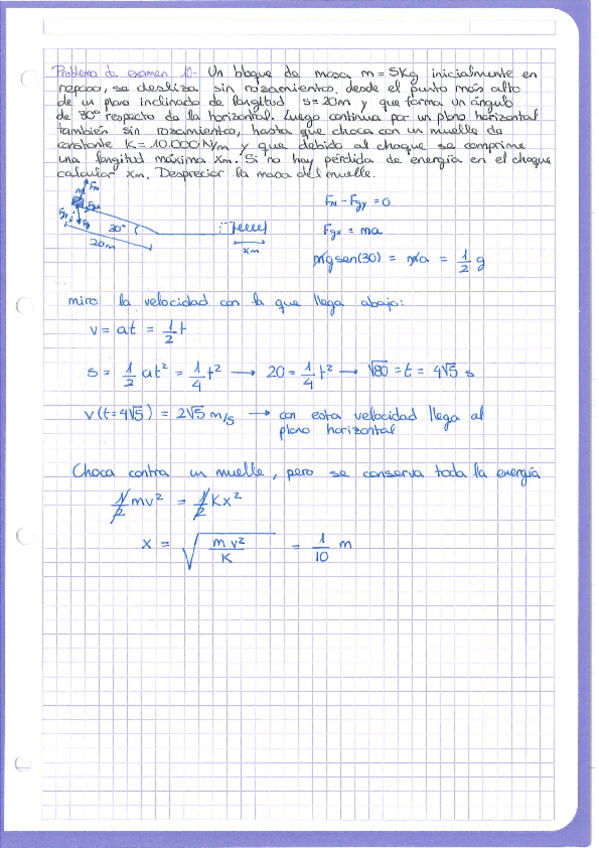 Problema de examen 10- Un bloque de masa m = 5Kg inicialmente en
reposo, se desliza sin rozamientos, desde el punto más alto
de un plano inclinado de longitud s = 20m y que forma un ángulo
de 30° respecto de la horizontal. Luego continua por un plano horizontal
también sin rozamientos, hasta que choca con un muelle de
constante K = 10.000 N/m y que debido al choque se comprime
una longitud máxima Xm. Si no hay pérdida de energía en el choque
calcular Xm. Despreciar la masa del muelle.
FN
Fgx
Fgy
Fg
30°
20m
xm
FN - Fgy = 0
Fgx = ma
mg sen(30) = ma = 1/2 g
miro la velocidad con la que llega abajo:
v = at = 1/2 t
s = 1/2 at² = 1/4 t² → 20 = 1/4 t² → √80 = t = 4√5 s
v(t=4√5) = 2√5 m/s → con esta velocidad llega al
plano horizontal
Choca contra un muelle, pero se conserva toda la energía
1/2 mv² = 1/2 Kx²
x = √(m v²/K) = 1/10 m